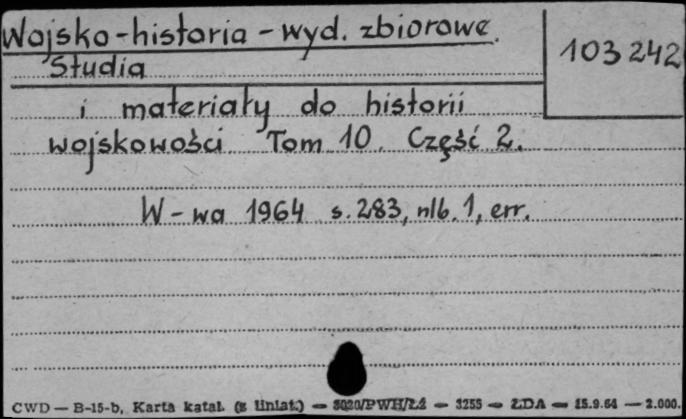 Wojsko-historia - wyd. zbiorowe.
103 242
Studia
i materiały do historii
wojskowości Tom 10. Część 2.
W-wa 1964 s. 283, nlb. 1, err.
CWD — B-15-b, Karta katal. (z liniat.) — 5020/PWH/ŁŻ — 3255 — ŁDA — 15.9.64 — 2.000.